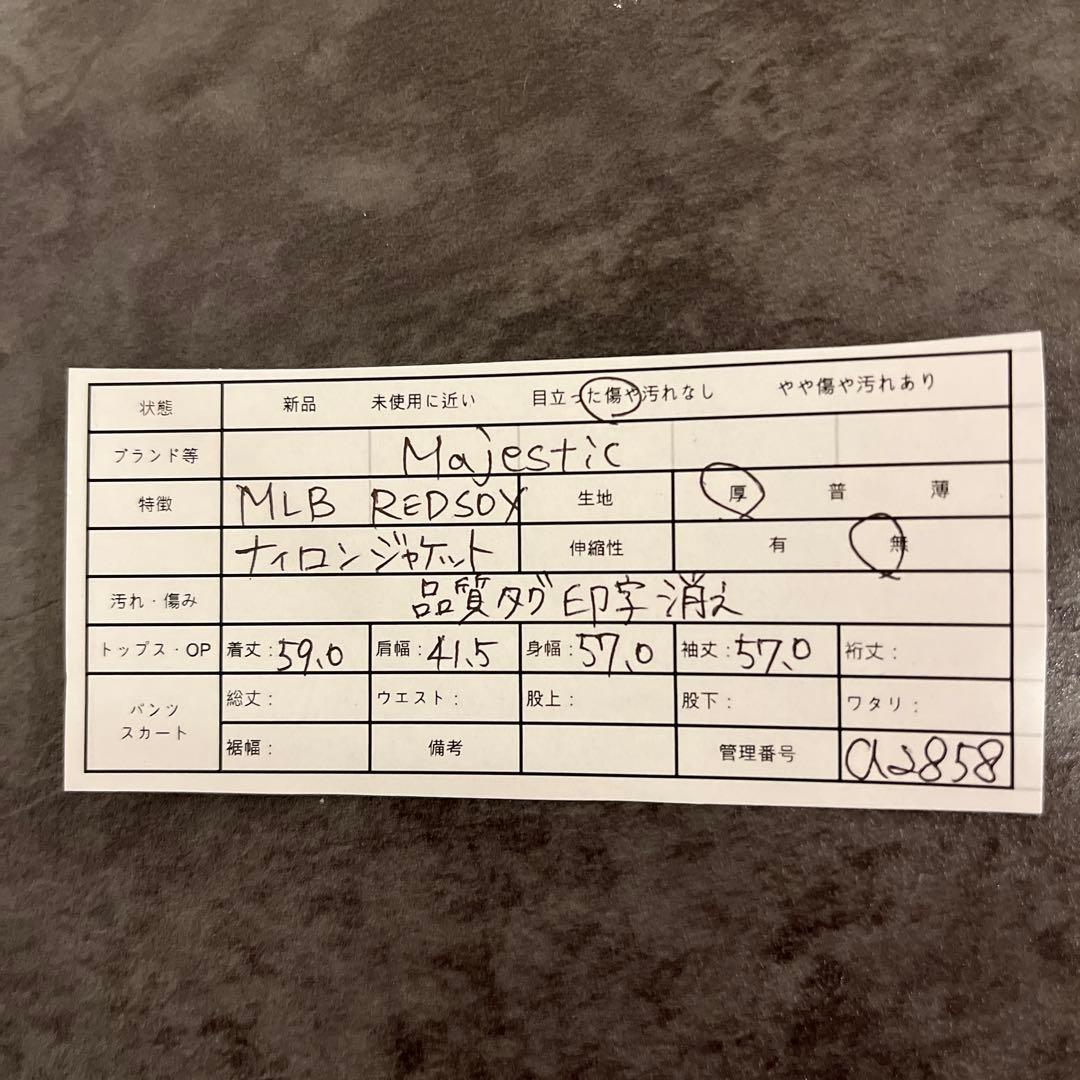 状態 新品 未使用に近い 目立った傷や汚れなし やや傷や汚れあり
ブランド等 Majestic
特徴 MLB REDSOX 生地 厚 普 薄
ナイロンジャケット 伸縮性 有 無
汚れ・傷み 品質タグ印字消え
トップス・OP 着丈:59.0 肩幅:41.5 身幅:57.0 袖丈:57.0 裄丈:
パンツ スカート 総丈: ウエスト: 股上: 股下: ワタリ:
裾幅: 備考 管理番号 a2858